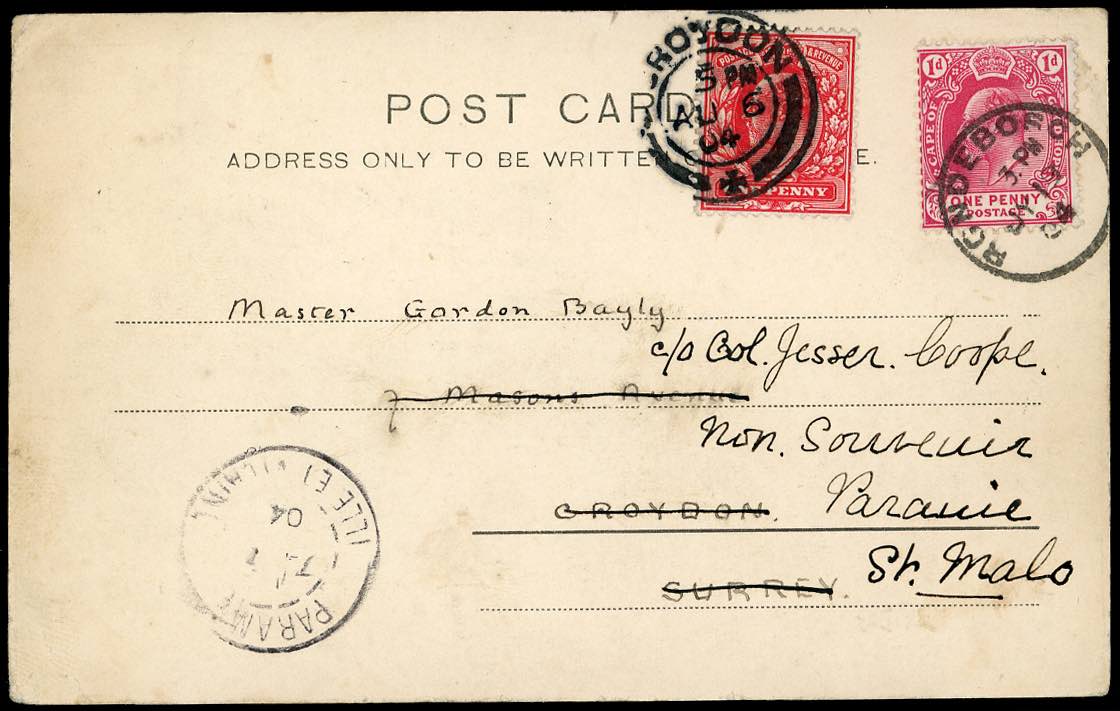 POST CARD
ADDRESS ONLY TO BE WRITTEN E.
ROYDON
5 PM
AU 6
04
POSTAGE & REVENUE
ONE PENNY
1d 1d
CAPE OF GOOD HOPE
ONE PENNY
POSTAGE
RONDEBOSCH
3. PM
04
Master Gordon Bayly
c/o Col. Jesser. Coope.
7 Masons Avenue
Non. Souvenir
CROYDON. Paramé
SURREY. St. Malo
PARAMÉ
ILLE ET VILAINE
04